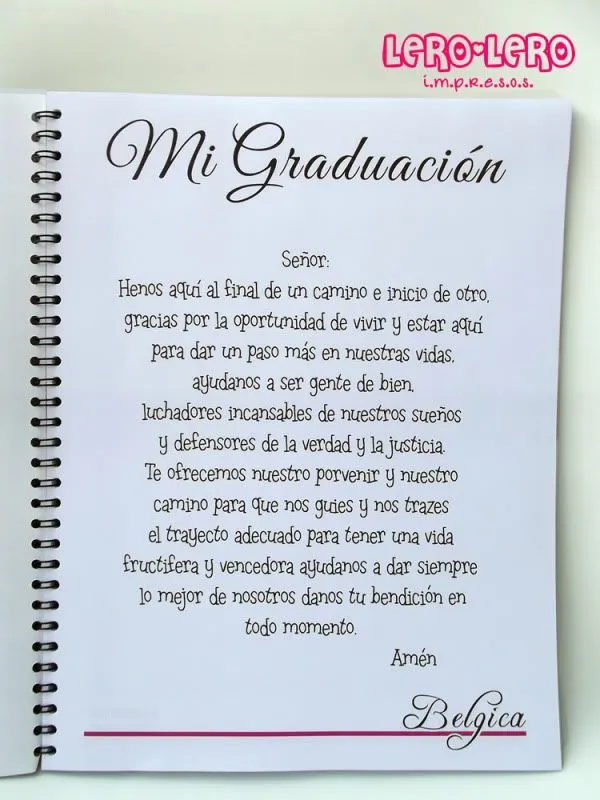 LERO LERO
i.m.p.r.e.s.o.s.
Mi Graduación
Señor:
Henos aquí al final de un camino e inicio de otro,
gracias por la oportunidad de vivir y estar aquí
para dar un paso más en nuestras vidas,
ayudanos a ser gente de bien,
luchadores incansables de nuestros sueños
y defensores de la verdad y la justicia.
Te ofrecemos nuestro porvenir y nuestro
camino para que nos guies y nos trazes
el trayecto adecuado para tener una vida
fructifera y vencedora ayudanos a dar siempre
lo mejor de nosotros danos tu bendición en
todo momento.
Amén
Belgica